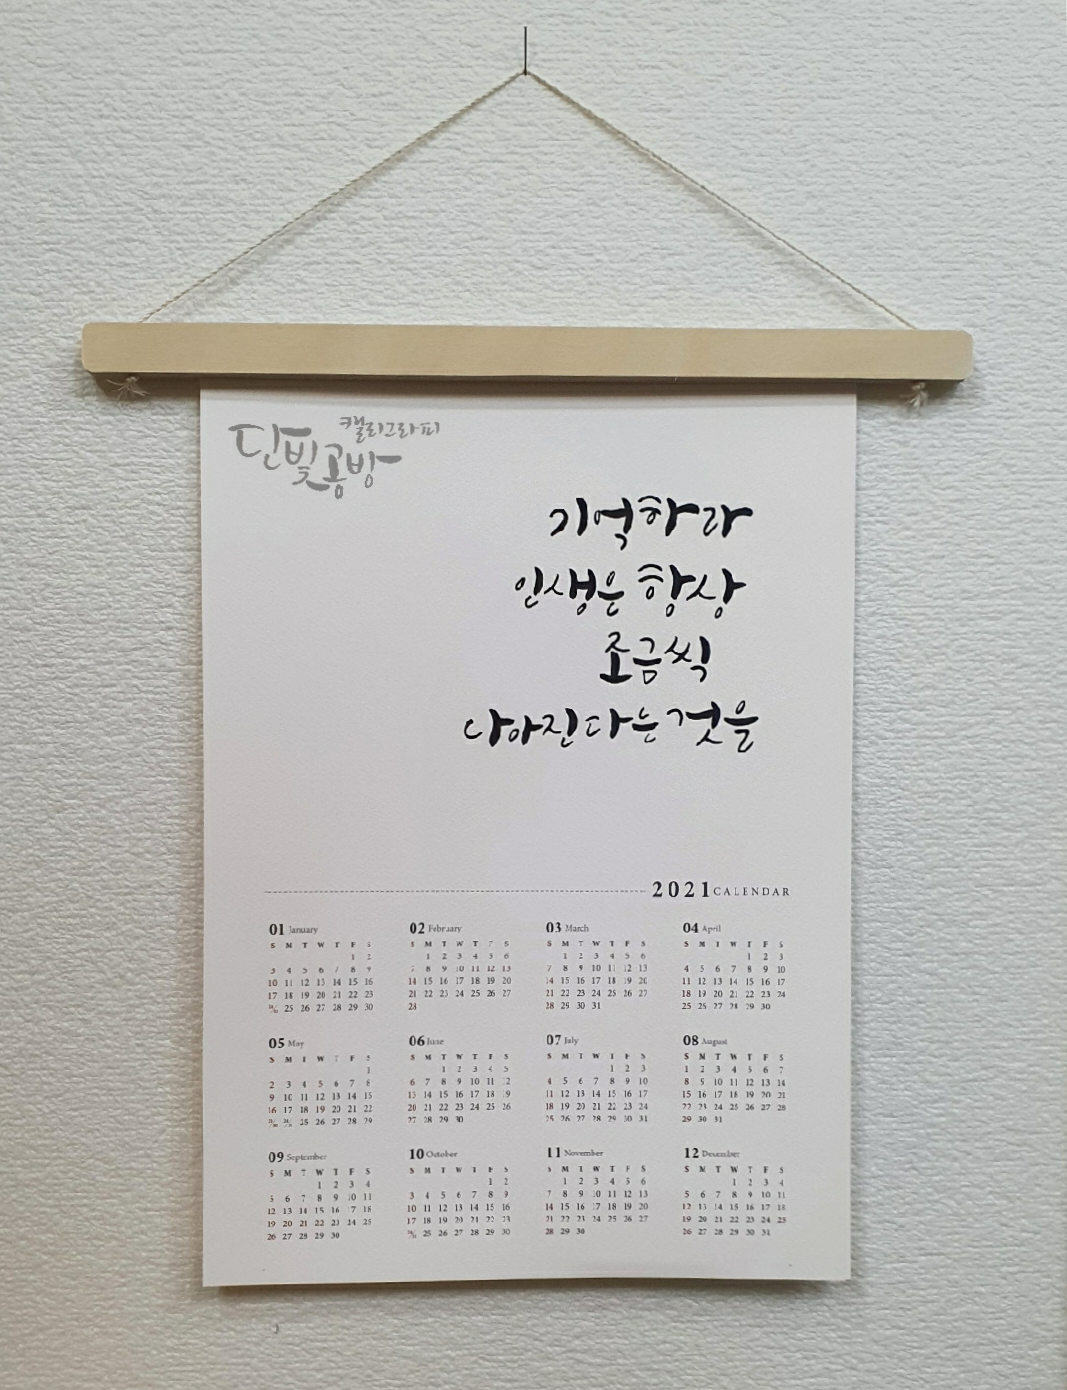 캘리그라피
단빛공방
기억하라
인생은 항상
조금씩
나아진다는 것을
2021 CALENDAR
01 January
S M T W T F S
1 2
3 4 5 6 7 8 9
10 11 12 13 14 15 16
17 18 19 20 21 22 23
25 26 27 28 29 30
02 February
S M T W T F S
1 2 3 4 5 6
7 8 9 10 11 12 13
14 15 16 17 18 19 20
21 22 23 24 25 26 27
28
03 March
S M T W T F S
1 2 3 4 5 6
7 8 9 10 11 12 13
14 15 16 17 18 19 20
21 22 23 24 25 26 27
28 29 30 31
04 April
S M T W T F S
1 2 3
4 5 6 7 8 9 10
11 12 13 14 15 16 17
18 19 20 21 22 23 24
25 27 28 29 30
05 May
S M T W T F S
1
2 3 4 5 6 7 8
9 10 11 12 13 14 15
16 17 18 19 20 21 22
25 26 27 28 29
06 June
S M T W T F S
1 2 3 4 5
6 7 8 9 10 11 12
13 14 15 16 17 18 19
20 21 22 23 24 25 26
27 28 29 30
07 July
S M T W T F S
1 2 3
4 5 6 7 8 9 10
11 12 13 14 15 16 17
18 19 20 21 22 23 24
25 26 27 28 29 30 31
08 August
S M T W T F S
1 2 3 4 5 6 7
8 9 10 11 12 13 14
15 16 17 18 19 20 21
22 23 24 25 26 27 28
29 30 31
09 September
S M T W T F S
1 2 3 4
5 6 7 8 9 10 11
12 13 14 15 16 17 18
19 20 21 22 23 24 25
26 27 28 29 30
10 October
S M T W T F S
1 2
3 4 5 6 7 8 9
10 11 12 13 14 15 16
17 18 19 20 21 22 23
25 26 27 28 29 30
11 November
S M T W T F S
1 2 3 4 5 6
7 8 9 10 11 12 13
14 15 16 17 18 19 20
21 22 23 24 25 26 27
28 29 30
12 December
S M T W T F S
1 2 3 4
5 6 7 8 9 10 11
12 13 14 15 16 17 18
19 20 21 22 23 24 25
26 27 28 29 30 31